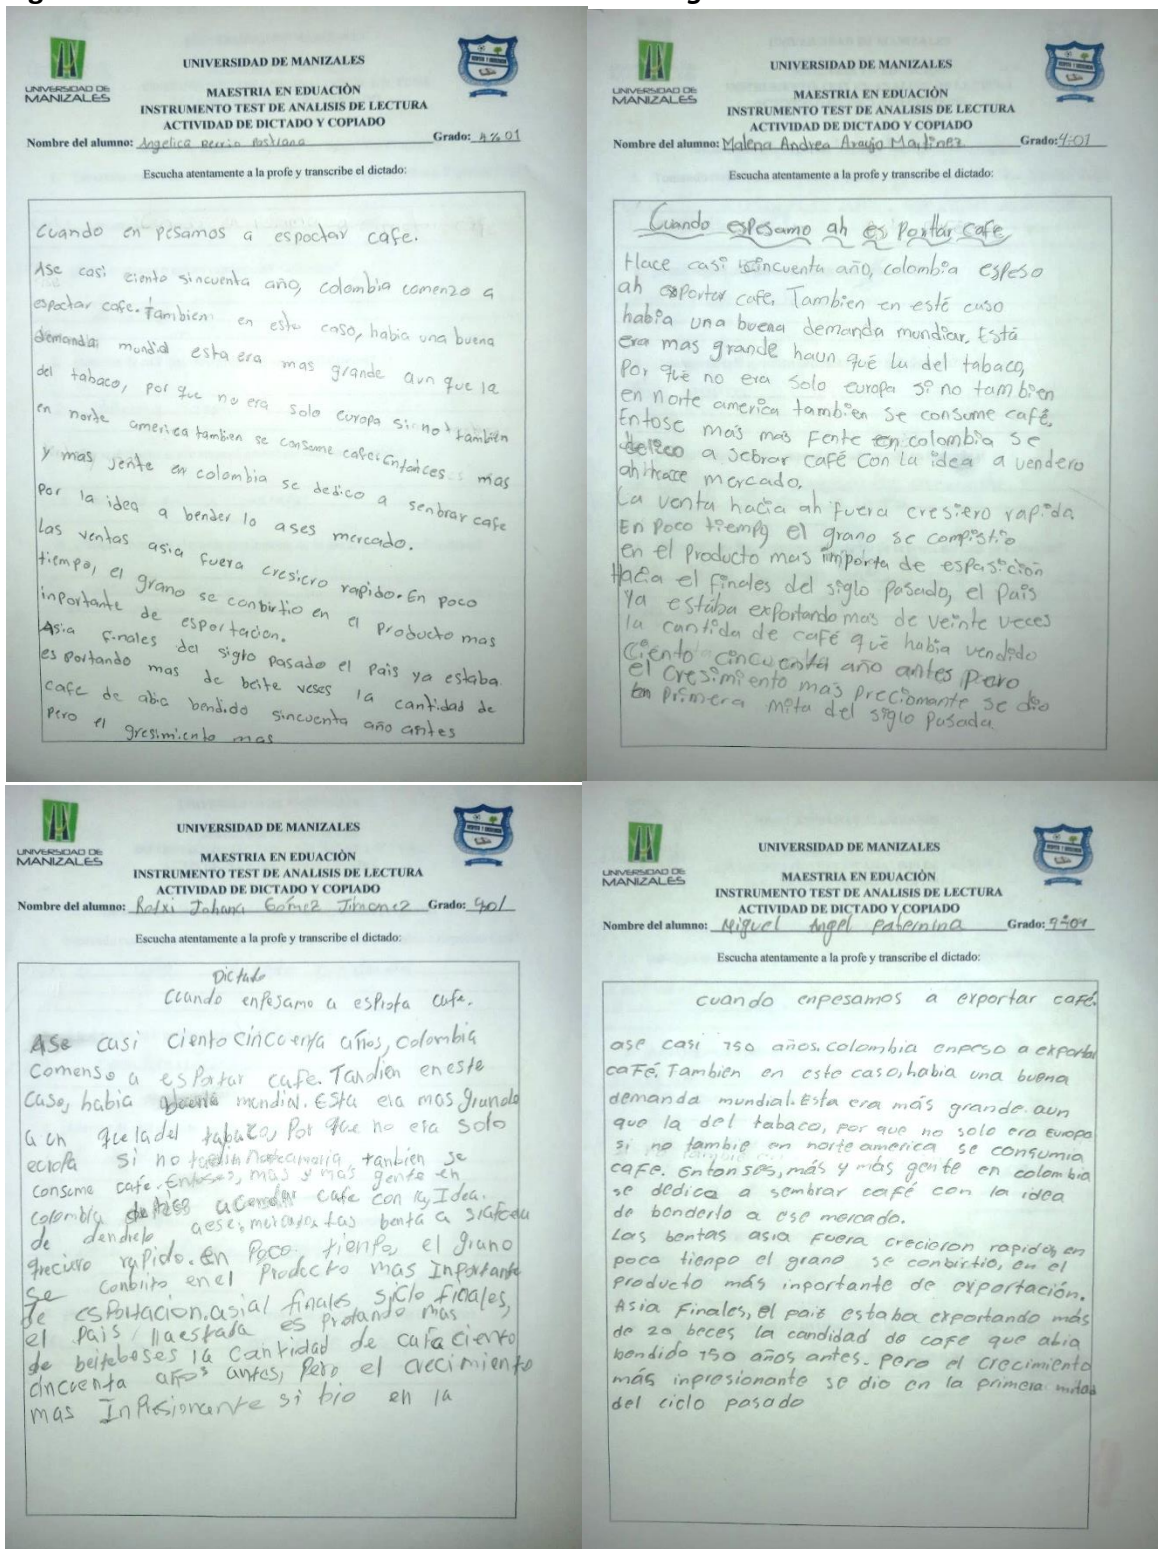 UNIVERSIDAD DE MANIZALES
UNIVERSIDAD DE
MANIZALES
MAESTRIA EN EDUACIÒN
INSTRUMENTO TEST DE ANALISIS DE LECTURA
ACTIVIDAD DE DICTADO Y COPIADO
Nombre del alumno: Angelica Berrio Grado: 4%01
Escucha atentamente a la profe y transcribe el dictado:
Cuando en pesamos a espoctar cafe.
Ase casi ciento sincuenta año, colombia comenzo a
espoctar cafe. Tambien en este caso, habia una buena
demanda mundial esta era mas grande aun que la
del tabaco, por que no era solo europa si no tambien
en norte america tambien se consome cafe. Entonces mas
y mas jente en colombia se dedico a senbrar cafe
por la idea a bender lo ases mercado.
Las ventas asia fuera cresiero rapido. En poco
tiempo, el grano se conbirtio en el producto mas
inportante de esportacion.
Asia finales del siglo pasado el pais ya estaba
es portando mas de beite veses la cantidad de
cafe de abia bendido sincuenta año antes
pero el gresimiento mas
UNIVERSIDAD DE MANIZALES
UNIVERSIDAD DE
MANIZALES
MAESTRIA EN EDUACIÒN
INSTRUMENTO TEST DE ANALISIS DE LECTURA
ACTIVIDAD DE DICTADO Y COPIADO
Nombre del alumno: Malena Andrea Araujo Martinez Grado: 4-01
Escucha atentamente a la profe y transcribe el dictado:
Cuando espesamo ah es portar cafe
Hace casi cincuenta año, colombia espeso
ah esportar cafe. Tambien en esté caso
había una buena demanda mundiar. Está
era mas grande haun qué la del tabaco,
Por que no era solo europa si no tambien
en norte america tambien se consume café.
Entose mas mas Fente en colombia se
a sebrar café con la idea a vendero
ah hace mercado.
La venta hacia ah fuera cresiero rapida.
En poco tiempo el grano se compistio
en el producto mas importa de esposicion
Hacia el finales del siglo pasado, el pais
ya estába exportando mas de veinte veces
la cantida de café qué había vendido
Ciénto cincuenta año antes pero
el cresimiento mas precionante se dio
en primera mita del siglo pasada
UNIVERSIDAD DE MANIZALES
UNIVERSIDAD DE
MANIZALES
MAESTRIA EN EDUACIÒN
INSTRUMENTO TEST DE ANALISIS DE LECTURA
ACTIVIDAD DE DICTADO Y COPIADO
Nombre del alumno: Johana Gómez Jimenez Grado: 401
Escucha atentamente a la profe y transcribe el dictado:
Dictado
Cuando enpesamo a espista cafe.
Ase casi ciento cincuenta años, colombia
comenso a esportar cafe. Tandien en este
caso, habia buena mondial. Esta era mas grande
a un que la del tabaco, por que no era solo
europa si no tanbien se
consume cafe. Entoses, mas y mas gente en
colombia cafe con la Idea.
de dendielo aese, mercado. Las bentá a
greciero rapido. en poco tienpo el grano
se conbirto en el producto mas Inportante
de esportacion. asia finales siclo finales,
el pais lla estada es protando mas
de beite beses la cantidad de cafa ciento
cincuenta años antes, pero el crecimiento
mas Inpresionante si bio en la
UNIVERSIDAD DE MANIZALES
UNIVERSIDAD DE
MANIZALES
MAESTRIA EN EDUACIÒN
INSTRUMENTO TEST DE ANALISIS DE LECTURA
ACTIVIDAD DE DICTADO Y COPIADO
Nombre del alumno: Miguel Angel paternina Grado:
Escucha atentamente a la profe y transcribe el dictado:
cuando enpesamos a exportar café.
ase casi 150 años. colombia enpeso a exportar
café. Tambien en este caso, habia una buena
demanda mundial. Esta era más grande aun
que la del tabaco, por que no solo era Europa
si no tambie en norte america se consumia
cafe. Entonses, más y más gente en colombia
se dedica a sembrar café con la idea
de benderlo a ese mercado.
Las bentas asia fuera crecieron rapidos en
poco tienpo el grano se conbirtio, en el
producto más inportante de exportación.
Asia finales, el pais estaba exportando más
de 20 beces la candidad de cafe que abia
bendido 150 años antes. pero el crecimiento
más inpresionante se dio en la primera mitad
del ciclo pasado